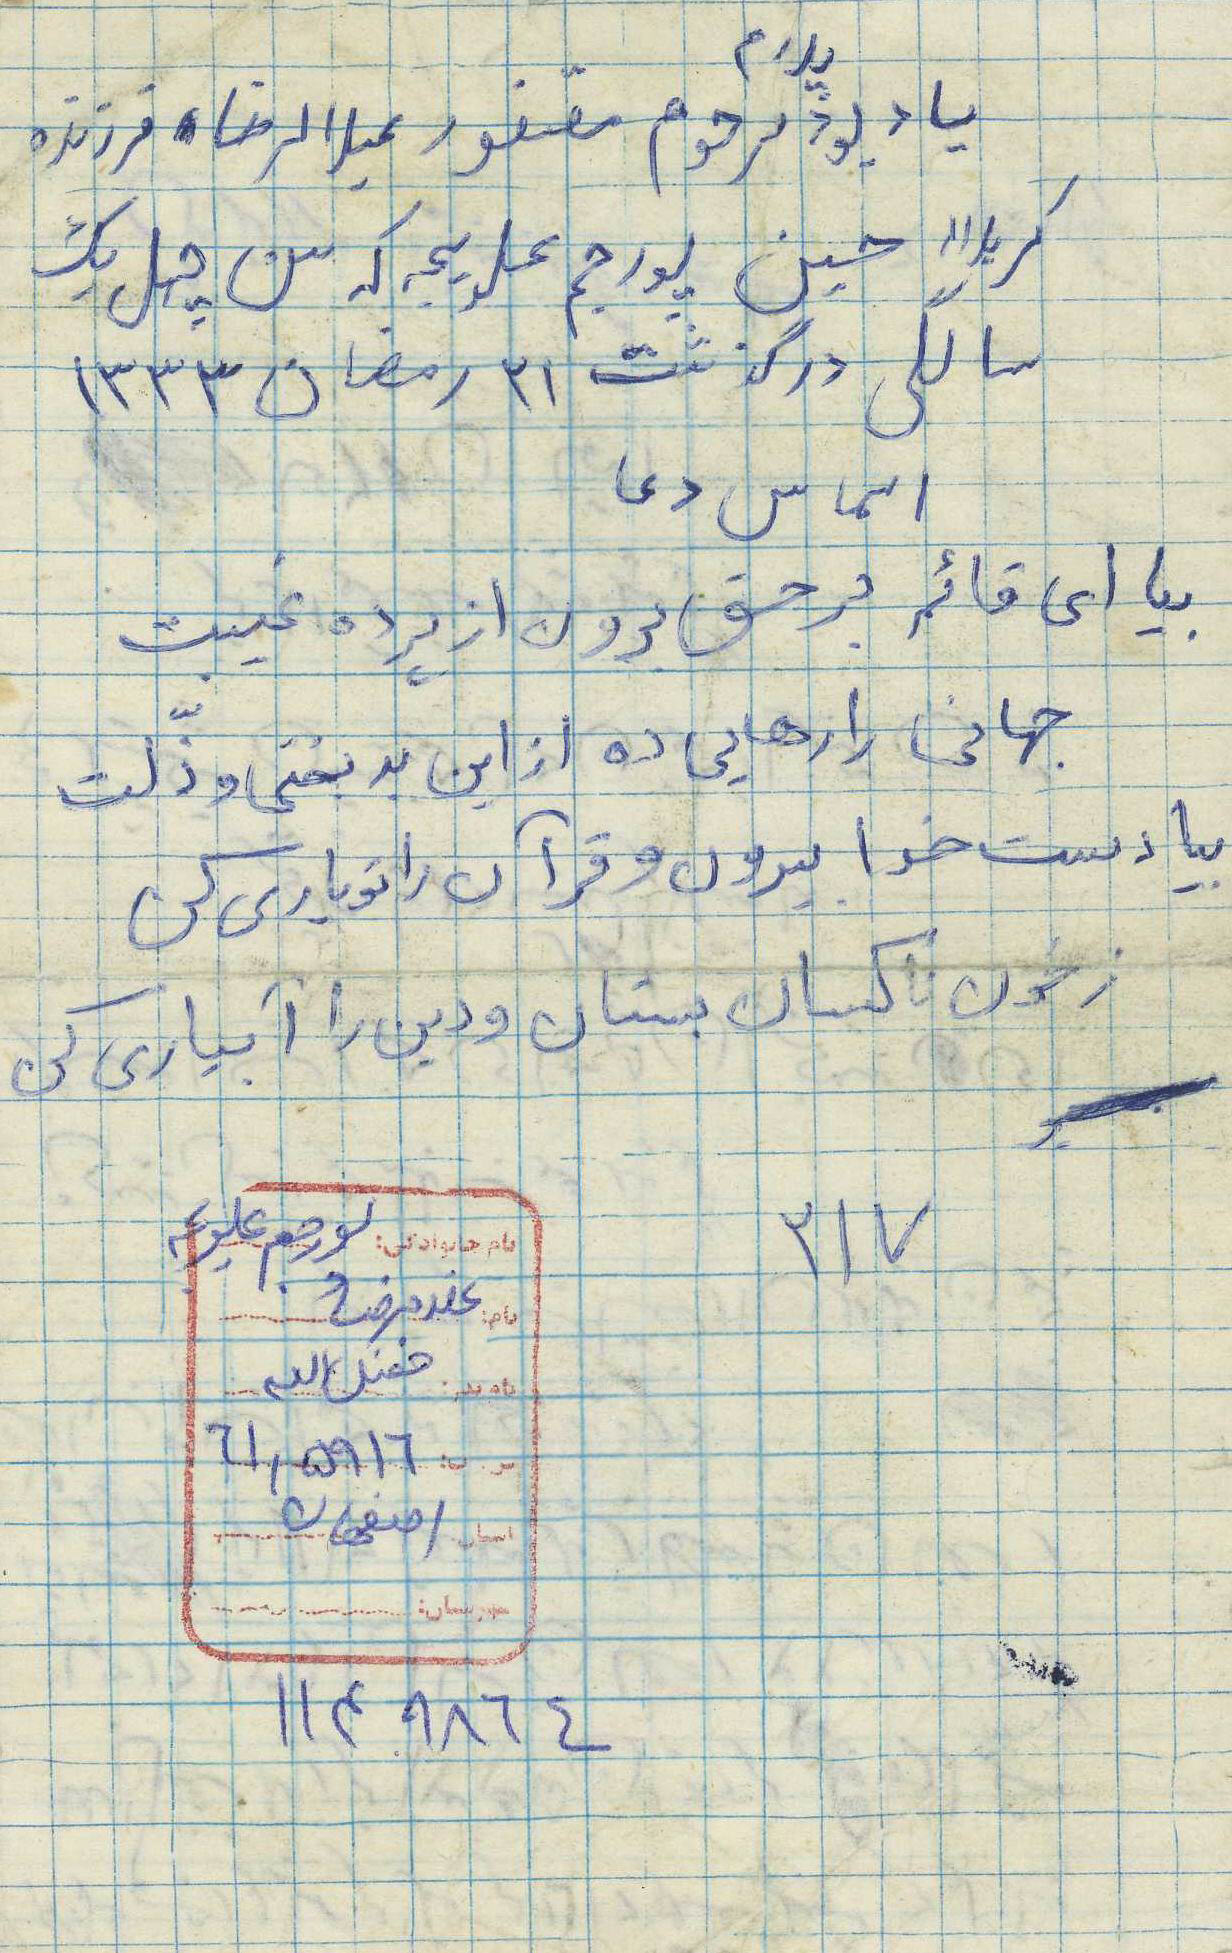 پدرم
یاد بود مرحوم مغفور عبدالرضا فرزنده
کربلا حسین پورجم علویجه که سن چهل یک
سالگی درگذشت ۲۱ رمضان ۱۳۳۳
التماس دعا
بیا ای قائم بر حق برون از پرده غیبت
جهانی را رهایی ده از این بدبختی و ذّلت
بیا دست خدا بیرون و قرآن را تو یاری کن
ز خون ناکسان بستان و دین را آبیاری کن
۳۱۷
نام خانوادگی: پورجم علویجه
نام:
نام پدر: فضل الله
۵۹۱٦
استان: اصفهان
شهرستان:
۱۱۴۹۸٦٤